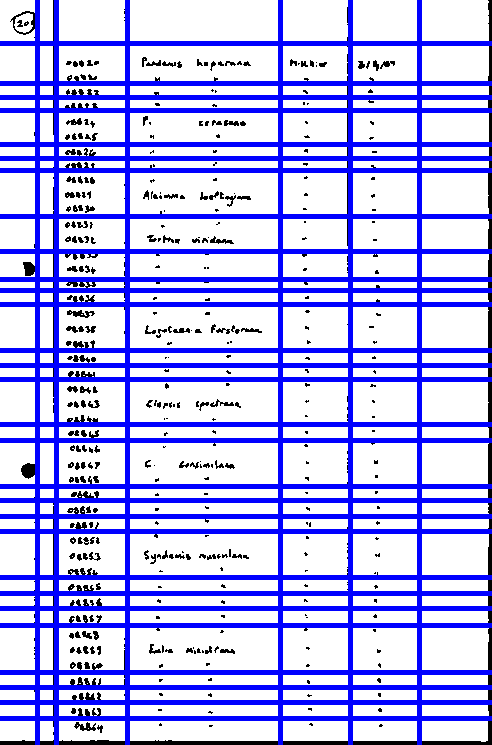 208820 Pandemis heparana M.Chior 3/4/87
08821 " " " "
08822 " " " "
08823 " " " "
08824 P. cerasana " "
08825 " " " "
08826 " " " "
08827 " " " "
08828 " " " "
08829 Aleimma loeflingiana " "
08830 " " " "
08831 " " " "
08832 Tortrix viridana " "
08833 " " " "
08834 " " " "
08835 " " " "
08836 " " " "
08837 " " " "
08838 Lozotaenia Forsterana " "
08839 " " " "
08840 " " " "
08841 " " " "
08842 " " " "
08843 Clepsis spectrana " "
08844 " " " "
08845 " " " "
08846 " " " "
08847 C. consimilana " "
08848 " " " "
08849 " " " "
08850 " " " "
08851 " " " "
08852 " " " "
08853 Syndemis musculana " "
08854 " " " "
08855 " " " "
08856 " " " "
08857 " " " "
08858 " " " "
08859 Eulia ministrana " "
08860 " " " "
08861 " " " "
08862 " " " "
08863 " " " "
08864 " " " "